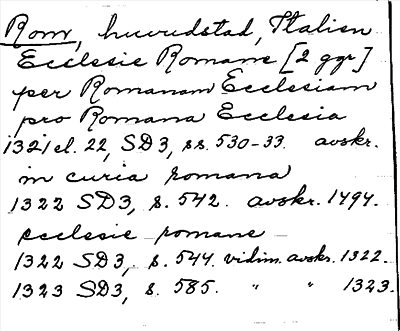 Rom, huvudstad, Italien
Ecclesie Romane [2 ggr]
per Romanam Ecclesiam
pro Romana Ecclesia
1321 el. 22, SD3, ss. 530-33. avskr.
in curia romana
1322 SD3, s. 542. avskr. 1494.
ecclesie romane
1322 SD3, s. 544. vidim. avskr. 1322.
1323 SD3, s. 585. " " 1323.